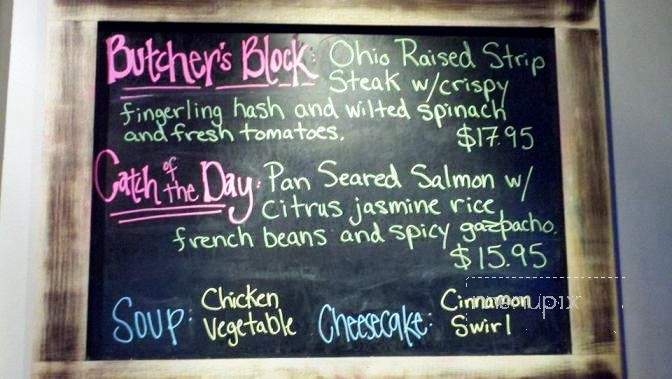 Butcher's Block: Ohio Raised Strip
Steak w/crispy
fingerling hash and wilted spinach
and fresh tomatoes. $17.95
Catch of the Day: Pan Seared Salmon w/
citrus jasmine rice,
french beans and spicy gazpacho.
$15.95
Soup: Chicken Vegetable
Cheesecake: Cinnamon Swirl
menupix